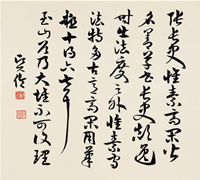 張長史懷素高閑皆
名善草書長史顛逸
時出法度之外懷素守
法特多古意高閑用筆
粗十得六七耳
至山谷乃大壞不可復理